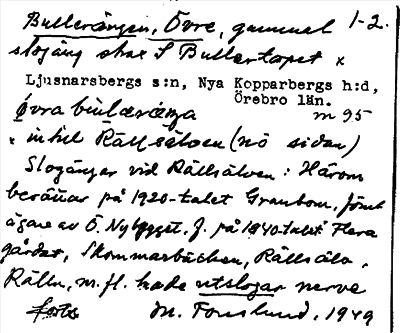 Bullerängen, Övre, gammal 1-2.
slogäng strax S Bullertorpet x
Ljusnarsbergs s:n, Nya Kopparbergs h:d,
Örebro län.
m 95
x intill Rällsälven (nö sidan)
Slogängar vid Rällsälven: Härom
berättar på 1920-talet Granbom, förut
ägare av Ö. Nybygget. J. på 1940-talet Flera
gårdar, Skommarbäcken, Rällsälv,
Rälln, m.fl. hade utslogar nerve
forts. M. Forslund, 1949